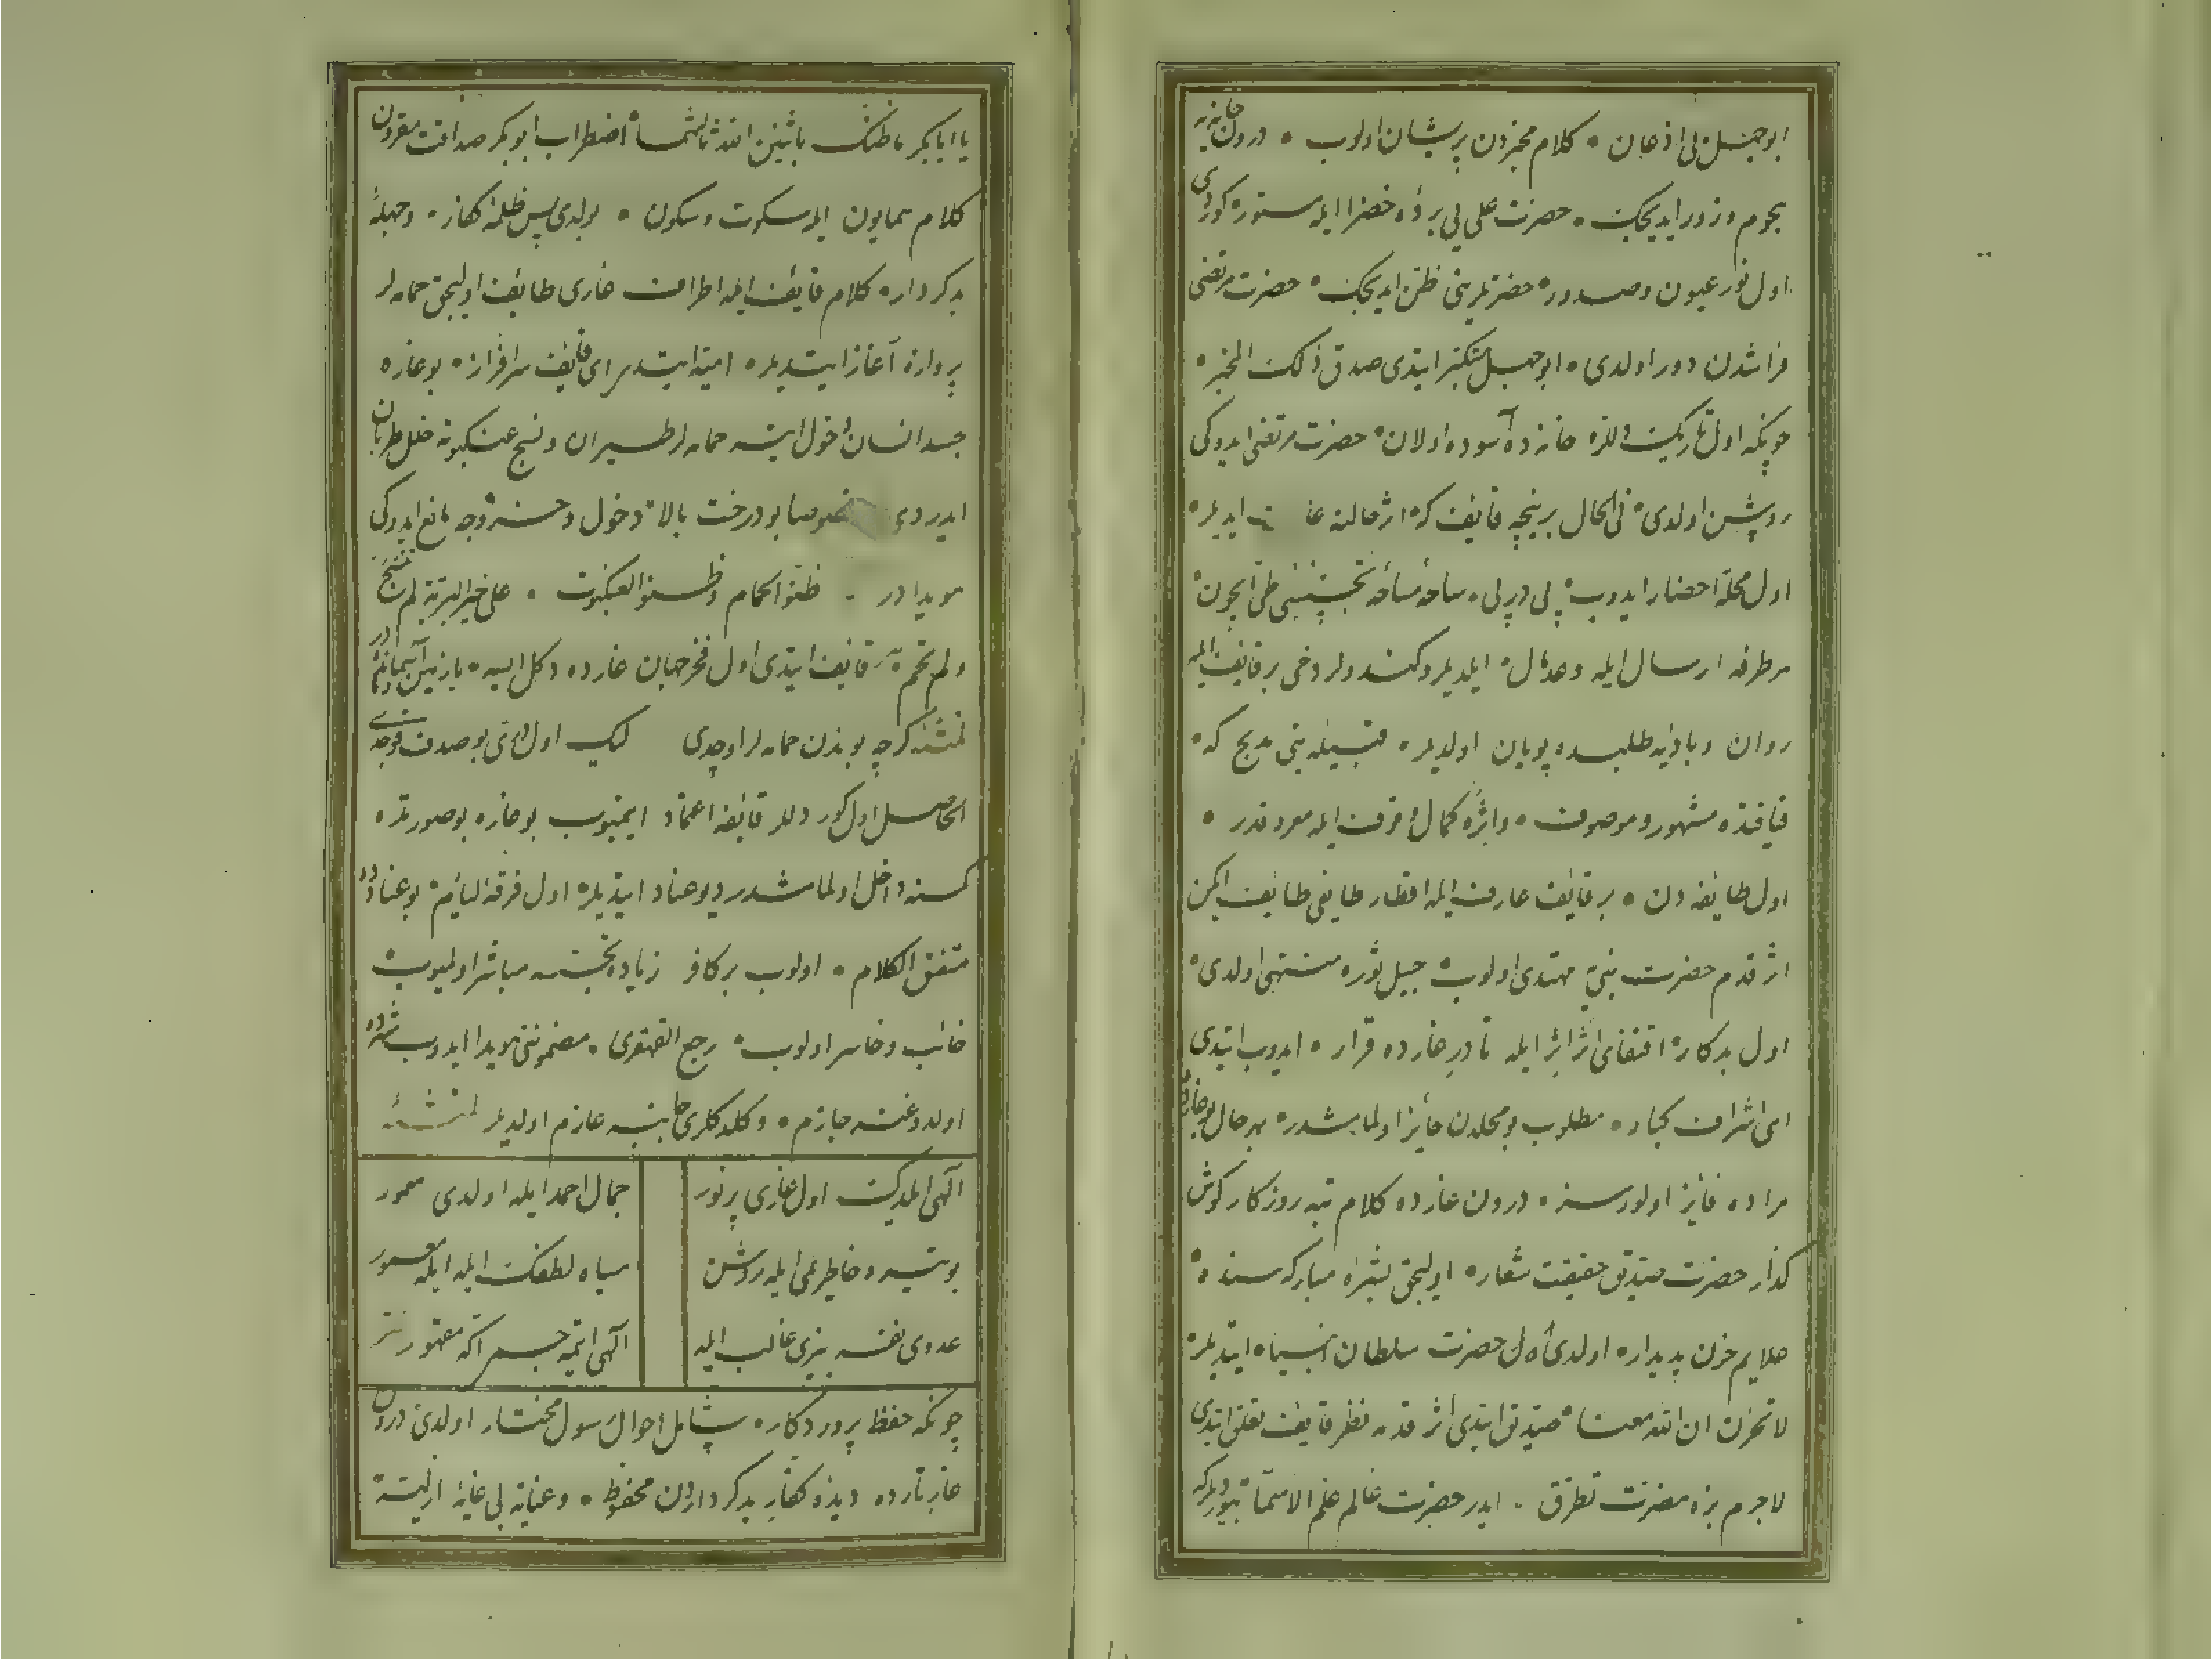 ابوجهل بی اذعان • کلام مخبردن پریشان اولوب • درون خانه یه
هجوم و زور ایدیجک • حضرت علی یی بردهٔ خضرا ایله مستور • کوردی
اول نور عیون و صدور • حضرتلرینی ظن ایدیجک • حضرت مرتضی
فراشدن دور اولدی • ابوجهل متکبر ایتدی صدق ذلک المخبر •
چونکه اول تاریک دللره خانه ده آسوده اولان • حضرت مرتضی ایدوکی
روشن اولدی • فی الحال برنیچه قایف که اثر قالنه ایدیلر •
اول محله احضار ایدوب • پی در پی • ساحه ساحه تجسسنی طی ایچون •
هر طرفه ارسال ایله وصال • ایلدیلر و کندولر دخی بر قایف ایله
روان و بادیهٔ طلبده پویان اولدیلر • قبیلهٔ بنی مدلج که •
قیافتده مشهور و موصوف • و اثره کمال وقوف ایله معروفدر •
اول طایفه دن • بر قایف عارف ایله اقطار طایفی طایف ایکن
اثر قدم حضرت نبی یه مهتدی اولوب • جبل ثوره منتهی اولدی •
اول بدکار • اقتفای اثر ایله تا در غارده قرار • ایدوب ایتدی
ای اشراف کبار • مطلوب بو محلدن جایز اولمامشدر • بهر حال بو غارده
مراده فایز اولورسز • درون غارده کلام تبه روزکار کوش
کذار حضرت صدیق حقیقت شعار • اولیجق بشرهٔ مبارکه سنده •
علایم حزن پدیدار • اولدی اول حضرت سلطان انبیاه ایتدیلر •
لا تحزن ان الله معنا • صدیق ایتدی اثر قدمه نظر قایف تعلق ایتدی
لاجرم بزه مضرت تطرق • ایدر حضرت عالم علم الاسما • بیوردیلرکه
یا ابابکر ما ظنک باثنین الله ثالثهما • اضطراب ابوبکر صداقت مقرون
کلام همایون ایله سکوت و سکون • بولدی پس ظلمهٔ کفار • و جهلهٔ
بدکردار • کلام قایف ایله اطراف غاری طایف اولیجق حمامه لر
پروازه آغاز ایتدیلر • امیه ایتدی ای قایف سرافراز • بو غاره
جسد انسان دخول ایتسه حمامه لر طیران و نسج عنکبوته خلل طریان
ایدردی خصوصا بو درخت بالا • دخول و خروجه مانع ایدوکی
هویدادر • ظنوا الحمام وظنوا العنکبوت • علی خیر البریة لم تنسج
ولم تحم • قایف ایتدی اول فخر جهان غارده دکل ایسه • یا زمین یا آسماندەدر
لمنشئه کرچه بو بزدن حمامه لر اوچدی لیک اول دری بو صدف قوچدی
الحاصل اول کور دللر قایفه اعتماد ایتمیوب بو غاره بو صورتده •
کسنه داخل اولمامشدر دیو عناد ایتدیلر • اول فرقهٔ لیام • بو عنادده
متفق الکلام • اولوب بر کافر زیاده تجسسه مباشر اولمیوب
خائب و خاسر اولوب • رجع القهقری • مضمونی هویدا ایدوب
اولدوغنه جازم • و کلدکلری جانبه عازم اولدیلر لمنشئه
الهی ایلدک اول غاری پر نور
جمال احمد ایله اولدی معمور
بو تیره خاطرمی ایله روشن
سپاه لطفک ایله ایله معمور
عدوی نفسه بزی غالب ایله
الهی ایتمه جسم اکه مقهور
چونکه حفظ پروردکار • شامل احوال رسول مختار اولدی درون
غار تارده دیدهٔ کفار بدکرداردن محفوظ • و عنایة بی غایهٔ ازلیه